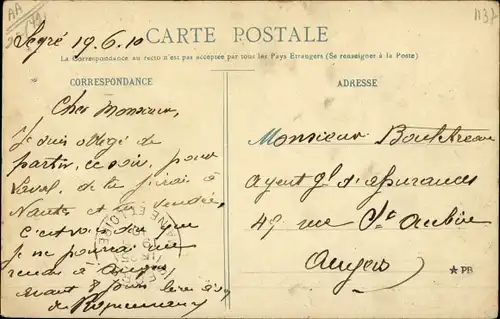 Segré 19.6.10
CARTE POSTALE
La Correspondance au recto n'est pas acceptée par tous les Pays Etrangers (Se renseigner à la Poste)
CORRESPONDANCE
Cher Monsieur,
Je suis obligé de
partir, ce soir, pour
Laval, de là j'irai à
Nantes et en Vendée,
c'est vous dire que
je ne pourrai me
rendre à Angers
avant 8 jours
ADRESSE
Monsieur
agent gl d'assurances
49 rue St Aubin
Angers
MAINE ET LOIRE
★ PB